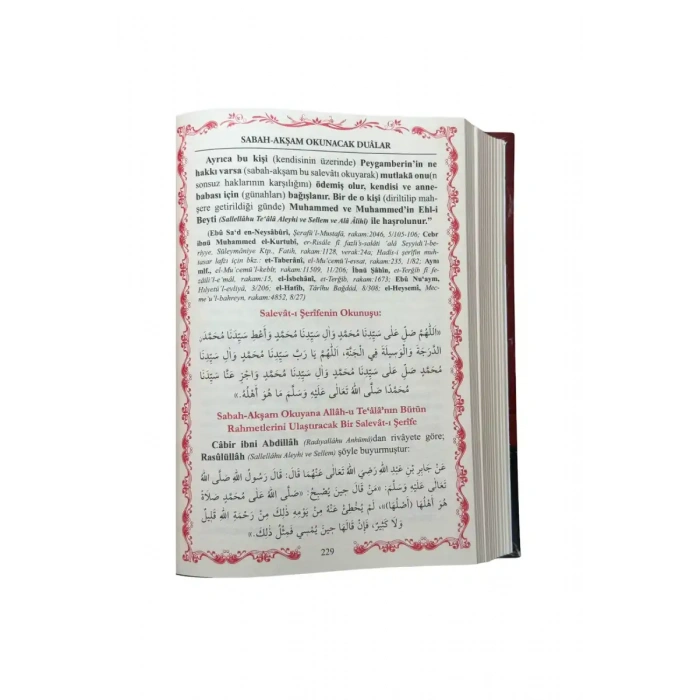 SABAH-AKŞAM OKUNACAK DUÂLAR
Ayrıca bu kişi (kendisinin üzerinde) Peygamberin'in ne
hakkı varsa (sabah-akşam bu salevâtı okuyarak) mutlakā onu(n
sonsuz haklarının karşılığını) ödemiş olur, kendisi ve anne-
babası için (günahları) bağışlanır. Bir de o kişi (diriltilip mah-
şere getirildiği günde) Muhammed ve Muhammed'in Ehl-i
Beyti (Sallellâhu Te'âlâ Aleyhi ve Sellem ve Alâ Âlihi) ile haşrolunur."
(Ebû Sa'd en-Neysâbûrî, Şerafü'l-Mustafâ, rakam:2046, 5/105-106; Cebr
ibnü Muhammed el-Kurtubî, er-Risâle fî fazli's-salâti 'alâ Seyyidi'l-be-
riyye, Süleymâniye Ktp., Fatih, rakam:1128, verak:24a; Hadîs-i şerîfin muh-
tasar lafzı için bkz.: et-Taberânî, el-Mu'cemü'l-evsat, rakam:235, 1/82; Aynı
mlf., el-Mu'cemü'l-kebîr, rakam:11509, 11/206; İbnü Şâhîn, et-Terğîb fî fe-
zâili'l-e'mâl, rakam:15, el-İsbehânî, et-Terğîb, rakam:1675; Ebû Nu'aym,
Hilyetü'l-evliyâ, 3/206; el-Hatîb, Târîhu Bağdâd, 8/308; el-Heysemî, Mec-
me'u'l-bahreyn, rakam:4852, 8/27)
Salevât-ı Şerîfenin Okunuşu:
«اَللّٰهُمَّ صَلِّ عَلَى سَيِّدِنَا مُحَمَّدٍ وَاٰلِ سَيِّدِنَا مُحَمَّدٍ وَأَعْطِ سَيِّدَنَا مُحَمَّدًا
الدَّرَجَةَ وَالْوَسِيلَةَ فِي الْجَنَّةِ، اَللّٰهُمَّ يَا رَبَّ سَيِّدِنَا مُحَمَّدٍ وَاٰلِ سَيِّدِنَا
مُحَمَّدٍ صَلِّ عَلَى سَيِّدِنَا مُحَمَّدٍ وَاٰلِ سَيِّدِنَا مُحَمَّدٍ وَاجْزِ عَنَّا سَيِّدَنَا
مُحَمَّدًا صَلَّى اللّٰهُ تَعَالَى عَلَيْهِ وَسَلَّمَ مَا هُوَ أَهْلُهُ.»
Sabah-Akşam Okuyana Allâh-u Te'âlâ'nın Bütün
Rahmetlerini Ulaştıracak Bir Salevât-ı Şerîfe
Câbir ibni Abdillâh (Radıyallâhu Anhümâ)dan rivâyete göre;
Rasûlüllâh (Sallellâhu Aleyhi ve Sellem) şöyle buyurmuştur:
عَنْ جَابِرِ بْنِ عَبْدِ اللّٰهِ رَضِيَ اللّٰهُ تَعَالَى عَنْهُمَا قَالَ: قَالَ رَسُولُ اللّٰهِ صَلَّى اللّٰهُ
تَعَالَى عَلَيْهِ وَسَلَّمَ: «مَنْ قَالَ حِينَ يُصْبِحُ: «صَلَّى اللّٰهُ عَلَى مُحَمَّدٍ صَلَاةً
هُوَ أَهْلُهَا (أَضْلُهَا)»، لَمْ يُخْطِئْ عَنْهُ مِنْ يَوْمِهِ ذٰلِكَ مِنْ رَحْمَةِ اللّٰهِ قَلِيلٌ
وَلَا كَثِيرٌ، فَإِنْ قَالَهَا حِينَ يُمْسِي فَمِثْلُ ذٰلِكَ.»
229